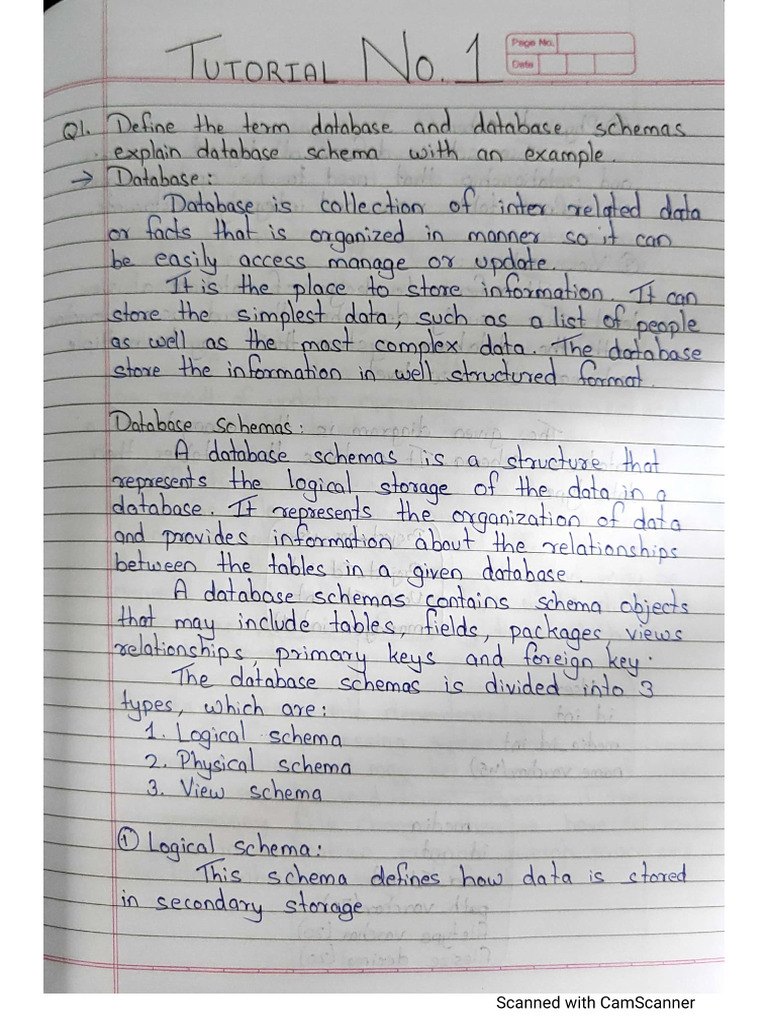 TUTORIAL NO. 1
Page No.
Date
Q1. Define the term database and database schemas
explain database schema with an example.
→ Database:
Database is collection of inter related data
or facts that is organized in manner so it can
be easily access manage or update.
It is the place to store information. It can
store the simplest data, such as a list of people
as well as the most complex data. The database
store the information in well structured format.
Database schemas:
A database schemas is a structure that
represents the logical storage of the data in a
database. It represents the organization of data
and provides information about the relationships
between the tables in a given database.
A database schemas contains schema objects
that may include tables, fields, packages, views
relationships, primary keys and foreign key.
The database schemas is divided into 3
types, which are:
1. Logical schema
2. Physical schema
3. View schema
① Logical schema:
This schema defines how data is stored
in secondary storage
Scanned with CamScanner